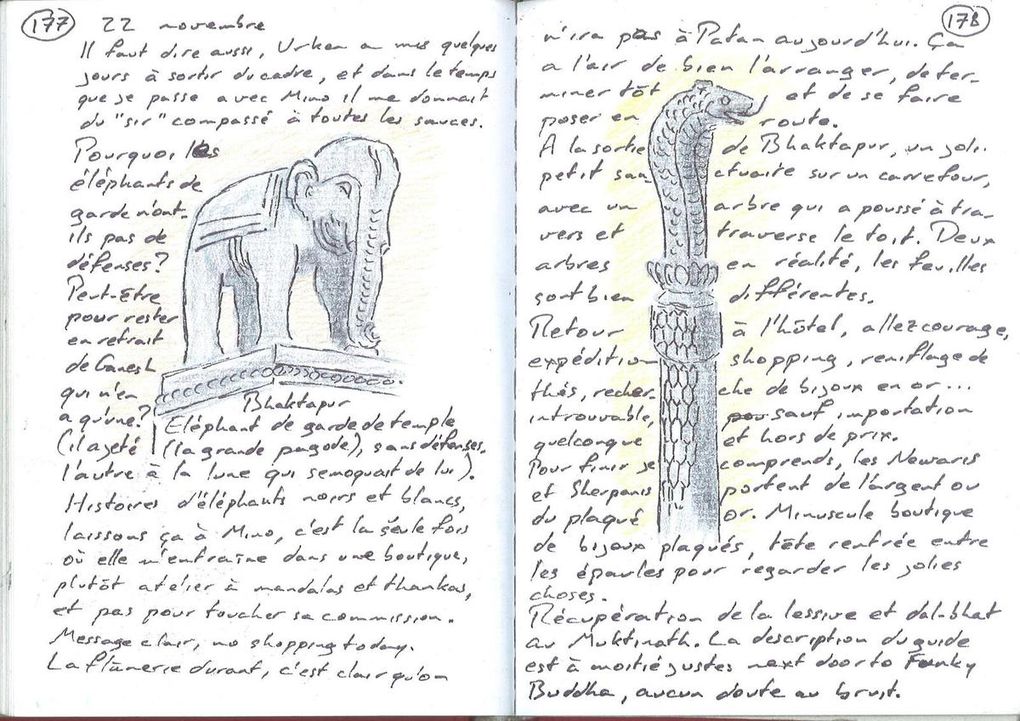 177
22 novembre
Il faut dire aussi, Urken a mis quelques
jours à sortir du cadre, et dans le temps
que je passe avec Mino il me donnait
du "sir" compassé à toutes les sauces.
Pourquoi les
éléphants de
garde n'ont-
ils pas de
défenses?
Peut-être
pour rester
en retrait
de Ganesh
qui n'en
a qu'une?
(il a jeté
l'autre à la lune qui se moquait de lui).
Bhaktapur
Eléphant de garde de temple
(la grande pagode), sans défenses.
Histoires d'éléphants noirs et blancs,
laissons ça à Mino, c'est la seule fois
où elle m'entraîne dans une boutique,
plutôt atelier à mandalas et thankas,
et pas pour toucher sa commission.
Message clair, no shopping today.
La flânerie durant, c'est clair qu'on
178
n'ira pas à Patan aujourd'hui. Ça
a l'air de bien l'arranger, de ter-
miner tôt et de se faire
poser en route.
A la sortie de Bhaktapur, un joli
petit san- ctuaire sur un carrefour,
avec un arbre qui a poussé à tra-
vers et traverse le toit. Deux
arbres en réalité, les feuilles
sont bien différentes.
Retour à l'hôtel, allez courage,
expédition shopping, reniflage de
thés, recher- che de bijoux en or...
introuvable, pas sauf importation
quelconque et hors de prix.
Pour finir je comprends, les Newaris
et Sherpanis portent de l'argent ou
du plaqué or. Minuscule boutique
de bijoux plaqués, tête rentrée entre
les épaules pour regarder les jolies
choses.
Récupération de la lessive et dal-bhat
au Muktinath. La description du guide
est à moitié juste: next door to Funky
Buddha, aucun doute au bruit.